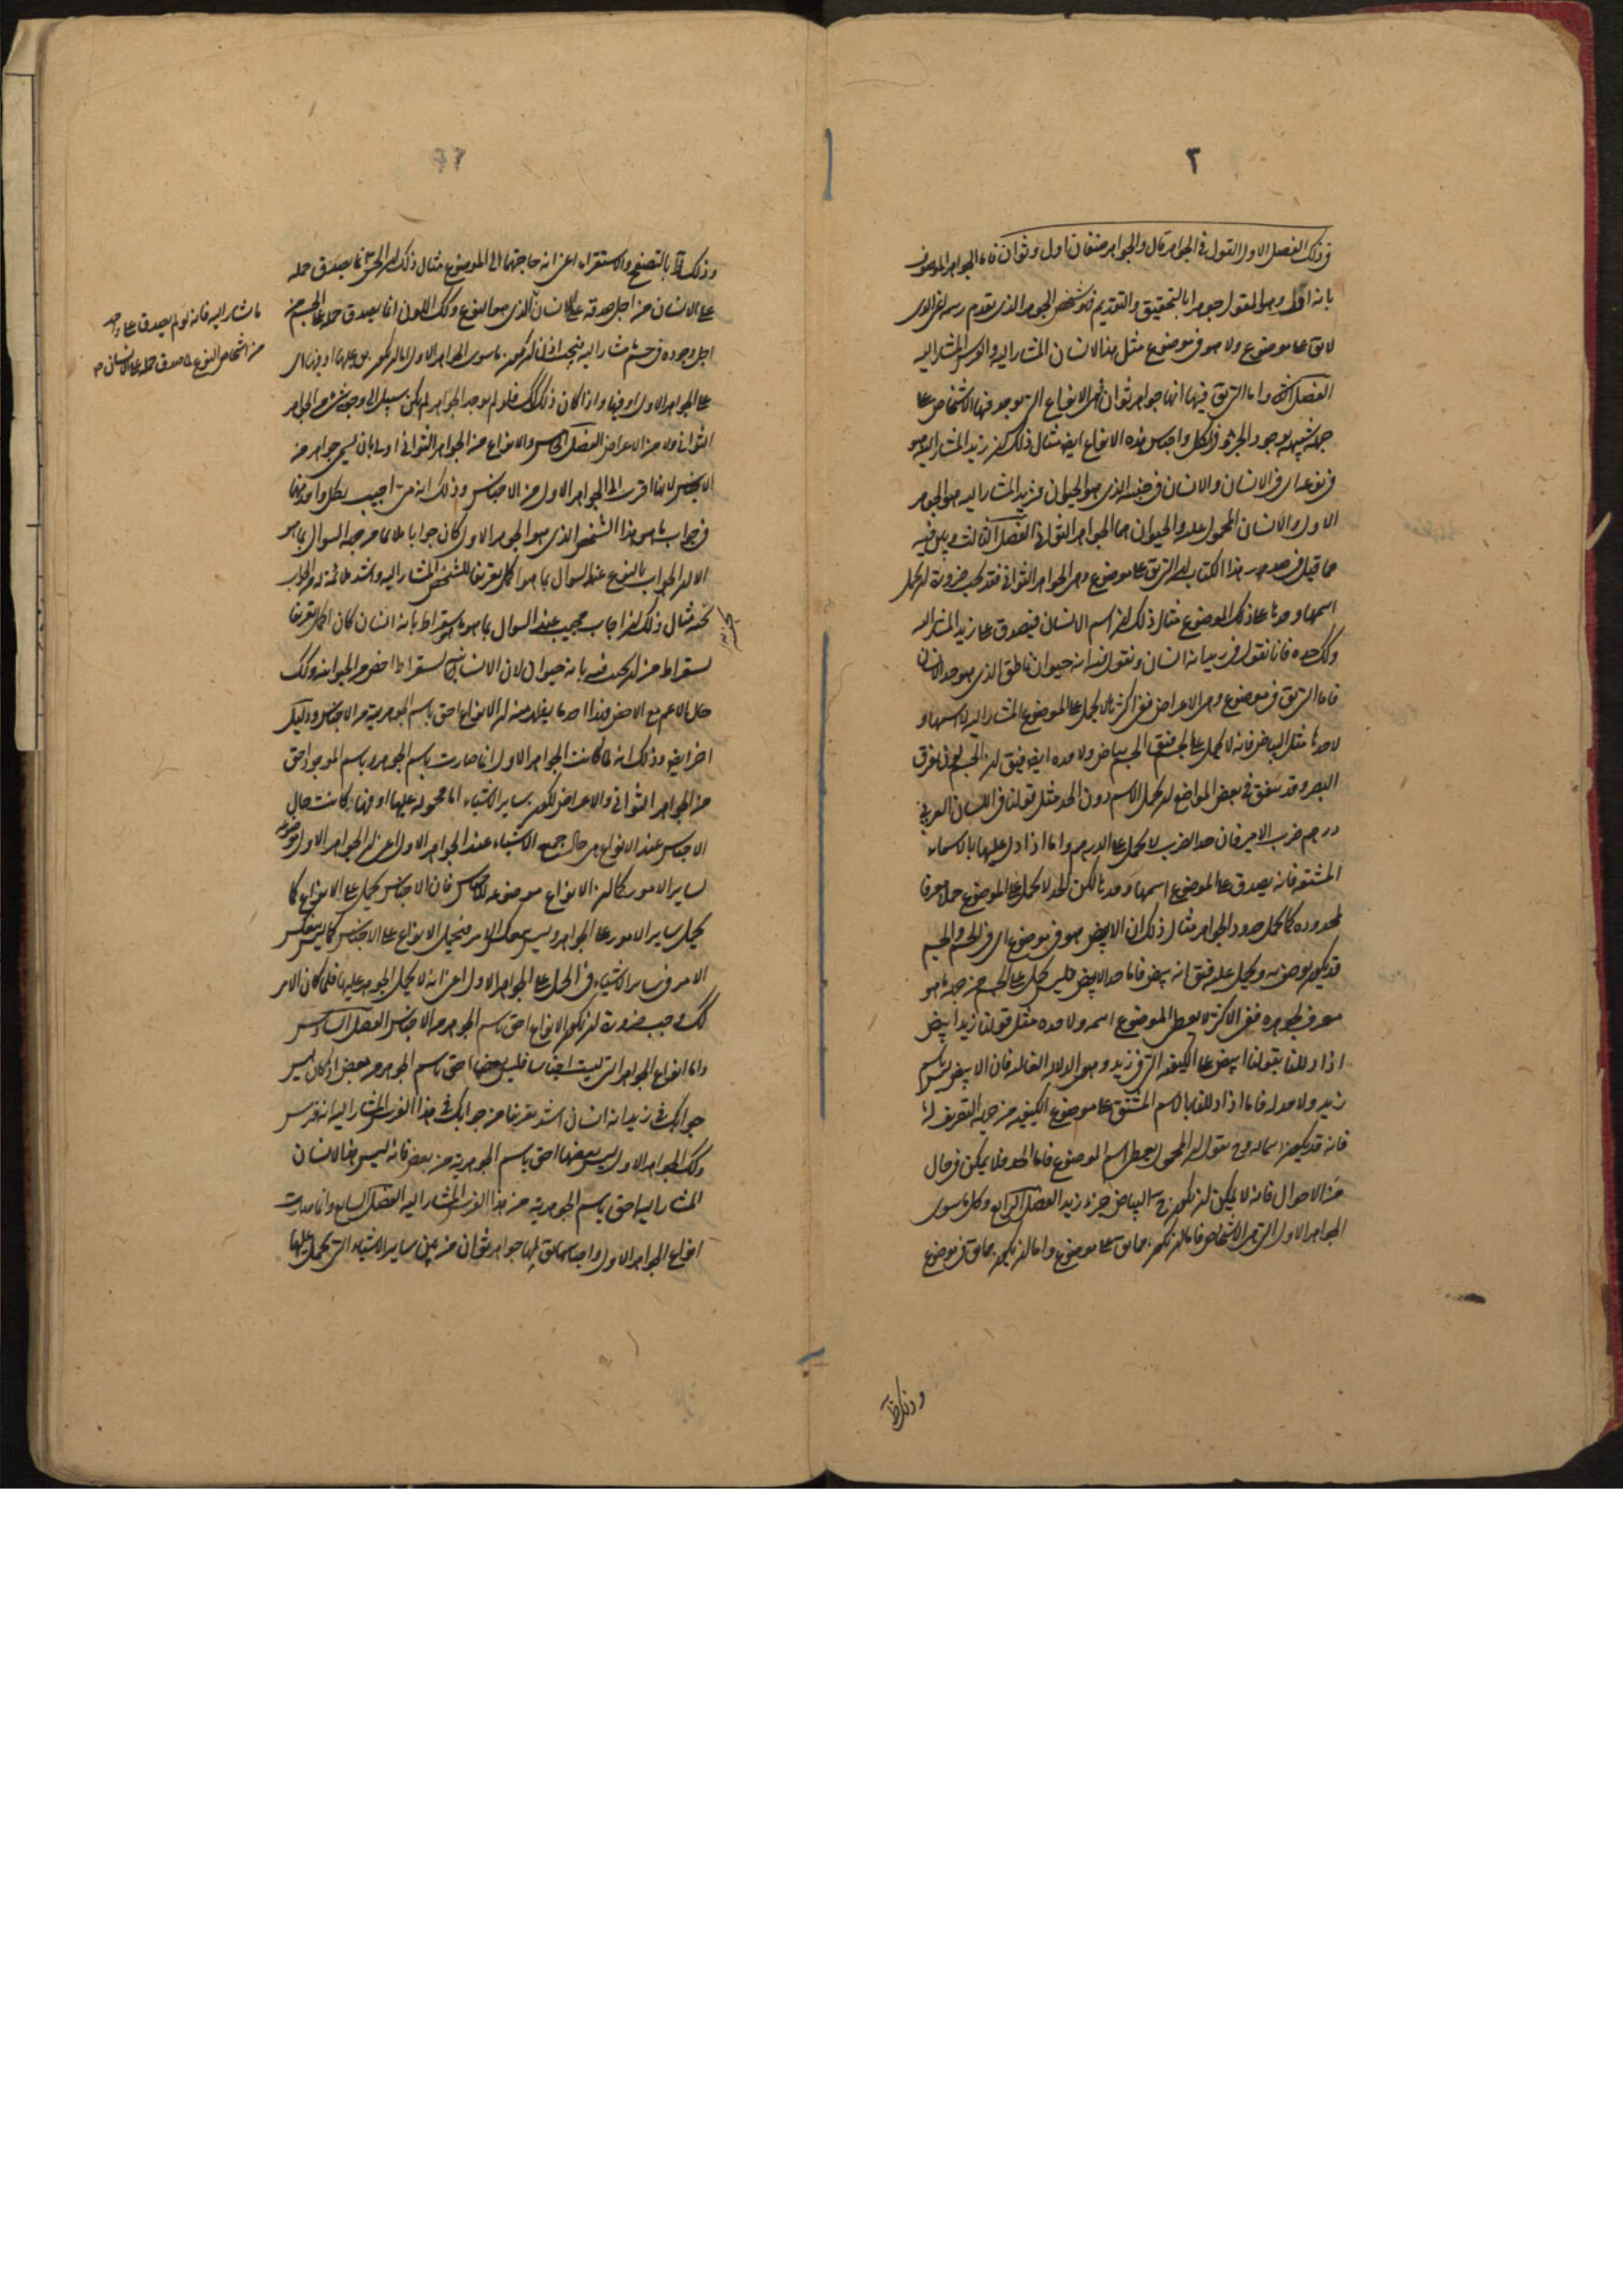 ٣
في ذلك الفصل الاول القول في الجواهر قال والجواهر صنفان اول وثوان فاما الجوهر الموصوف
بانه اول وهو المقول جوهرا بالتحقيق والتقديم فهو شخص الجوهر الذى تقدم رسمه اعنى الذى
لا يق على موضوع ولا هو في موضوع مثل هذا الانسان المشار اليه والفرس المشار اليه
الفصل الثانى واما التى يق فيها انها جواهر ثوان فهى الانواع التى توجد فيها الاشخاص على
جهة شبيهة بوجود الجزء في الكل واجناس هذه الانواع ايضا مثال ذلك ان زيد المشار اليه هو
في نوعه اى في الانسان والانسان في جنسه الذى هو الحيوان فزيد المشار اليه هو الجوهر
الاول والانسان المحمول عليه والحيوان هما الجواهر الثوانى الفصل الثالث وبين
مما قيل في صدر هذا الكتاب ان التى يق على موضوع وهى الجواهر الثوانى فقد يجب ضرورة ان يحمل
اسمها وحدها على ذلك الموضوع مثال ذلك ان اسم الانسان فيصدق على زيد المشار اليه
وكك حده فانا نقول في زيد انه انسان ونقول فيه انه حيوان ناطق الذى هو حد الانسان
فاما التى يق في موضوع وهى الاعراض ففى اكثرها لا يحمل على الموضوع المشار اليه لا اسمها و
لا حدها مثل البياض فانه لا يحمل على الجسم فيق الجسم بياض ولا حده ايضا فيق ان الجسم لون يفرق
البصر وقد يتفق في بعض المواضع ان يحمل الاسم دون الحد مثل قولنا في اللسان العربى
درهم ضرب الامير فان حد الضرب لا يحمل على الدرهم واما اذا دل عليها بالاسماء
المشتقة فانه يصدق على الموضوع اسمها وحدها لكن الحد لا يحمل على الموضوع حملا معرفا
لحدوده كما يحمل حدود الجواهر مثال ذلك ان الابيض هو في موضوع اى في الجسم والجسم
قد يكون يوصف به ويحمل عليه فيق انه ابيض فاما حد الابيض فليس يحمل على الجسم من جهة ما هو
معرف لجوهره ففى الاكثر لا يعطى الموضوع اسمه ولا حده مثل قولنا زيد ابيض
اذا دللنا بقولنا ابيض على الكيفية التى في زيد وهو الدلالة القالة فان الابيض ليس باسم
زيد ولا حد له فاما اذا دللنا بالاسم المشتق على موضوع الكيفية من جهة التعريف لها
فانه قد يكون اسما له وح نقول ان المحمول يعطى اسم الموضوع فاما الحد فلا يمكن في حال
من الاحوال فانه لا يمكن ان يكون ح البياض جزء زيد الفصل الرابع وكل ما سوى
الجواهر الاول التى هى الاشخاص فاما ان يكون مما يق على موضوع واما ان يكون مما يق في موضوع
وذلك ظ
وذلك ظ بالتصفح والاستقراء اعنى انه حاجتها الى الموضوع مثال ذلك ان الحى انما يصدق حمله
على الانسان من اجل صدقه على انسان ما الذى هو النوع وكك اللون انما يصدق حمله على الجسم من
اجل وجوده في جسم ما مشار اليه فيجب اذا ان يكون ما سوى الجواهر الاول اما ان يكون يق عليها او فيها اى
على الجواهر الاول او فيها واذا كان ذلك كك فلو لم يوجد الجواهر لم يكن سبيل الى وجود شئ من الجواهر
الثوانى ولا من الاعراض الفصل الخامس والانواع من الجواهر الثوانى اولى بان يسمى جواهر من
الاجناس لانها اقرب الى الجواهر الاول من الاجناس وذلك انه متى اجيب بكل واحد منها
في جواب ما هو هذا الشخص الذى هو الجوهر الاول كان جوابا ملائما من جهة السوال بما هو
الا ان الجواب بالنوع عند السوال بما هو اكمل تعريفا للشخص المشار اليه واشد ملائمة له من الجواب
بجنسه مثال ذلك ان اجاب مجيب عند السوال بما هو سقراط بانه انسان كان اكمل تعريفا
لسقراط من ان يجيب فيه بانه حيوان لان الانسانية بسقراط اخص من الحيوانية وكك
حال الاعم مع الاخص فهذا احد ما يظهر منه ان الانواع احق باسم الجوهرية من الاجناس ودليل
اخر ايضا وذلك انه لما كانت الجواهر الاول انما صارت باسم الجوهر وباسم الموجود احق
من الجواهر الثوانى والاعراض لكون ساير الاشياء اما محمولة عليها او فيها وكانت حال
الاجناس عند الانواع هى حال جميع الاشياء عند الجواهر الاول اعنى ان الجواهر الاول موضوعة
لساير الامور كما ان الانواع موضوعة للاجناس فان الاجناس يحمل على الانواع كما
يحمل ساير الامور على الجواهر وليس ينعكس الامر فيحمل الانواع على الاجناس كما ليس ينعكس
الامر في ساير الاشياء في الحمل على الجواهر الاول اعنى انه لا يحمل الجوهر عليها فلما كان الامر
كك وجب ضرورة ان يكون الانواع احق باسم الجوهر من الاجناس الفصل السادس
واما انواع الجواهر التى ليست اجناسا فليس بعضها احق باسم الجوهر من بعض اذ كان ليس
جوابك في زيد انه انسان اشد تعريفا من جوابك في هذا الفرس المشار اليه انه فرس
وكك الجواهر الاول ليس بعضها احق باسم الجوهرية من بعض فانه ليس هذا الانسان
المشار اليه احق باسم الجوهرية من هذا الفرس المشار اليه الفصل السابع وانما صارت
انواع الجواهر الاول واجناسها يق لها جواهر ثوان من بين ساير الاشياء التى يحمل عليها
ما مشار اليه فانه لو لم يصدق على واحد
من اشخاص النوع لما صدق حمله على الانسان